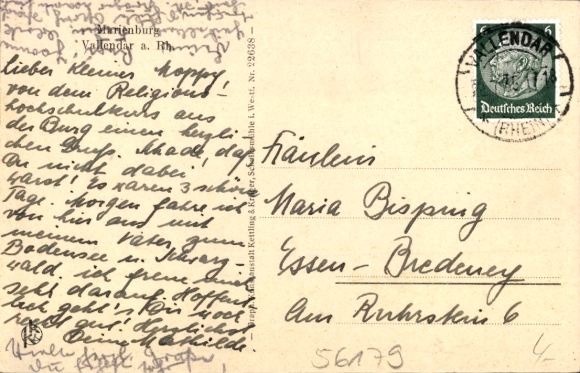 Marienburg
Vallendar a. Rh.
Lieber kleiner Moppy!
von dem Religions-
hochschulkurs aus
der Burg einen herzli-
chen Gruß. Schade, daß
Du nicht dabei
warst! Es waren 3 schöne
Tage. Morgen fahre ich
von hier aus mit
meinem Vater zum
Bodensee u. Schwarz-
wald. ich freue mich
sehr darauf. Hoffent-
lich geht's Dir noch
recht gut! Herzlichst
Deine Mathilde.
Graph. Kunstanstalt Kettling & Krüger, Schalksmühle i. Westf. Nr. 22638
6
Deutsches Reich
VALLENDAR
(RHEIN)
Fräulein
Maria Bisping
Essen-Bredeney
Am Ruhrstein 6
56179
4,-